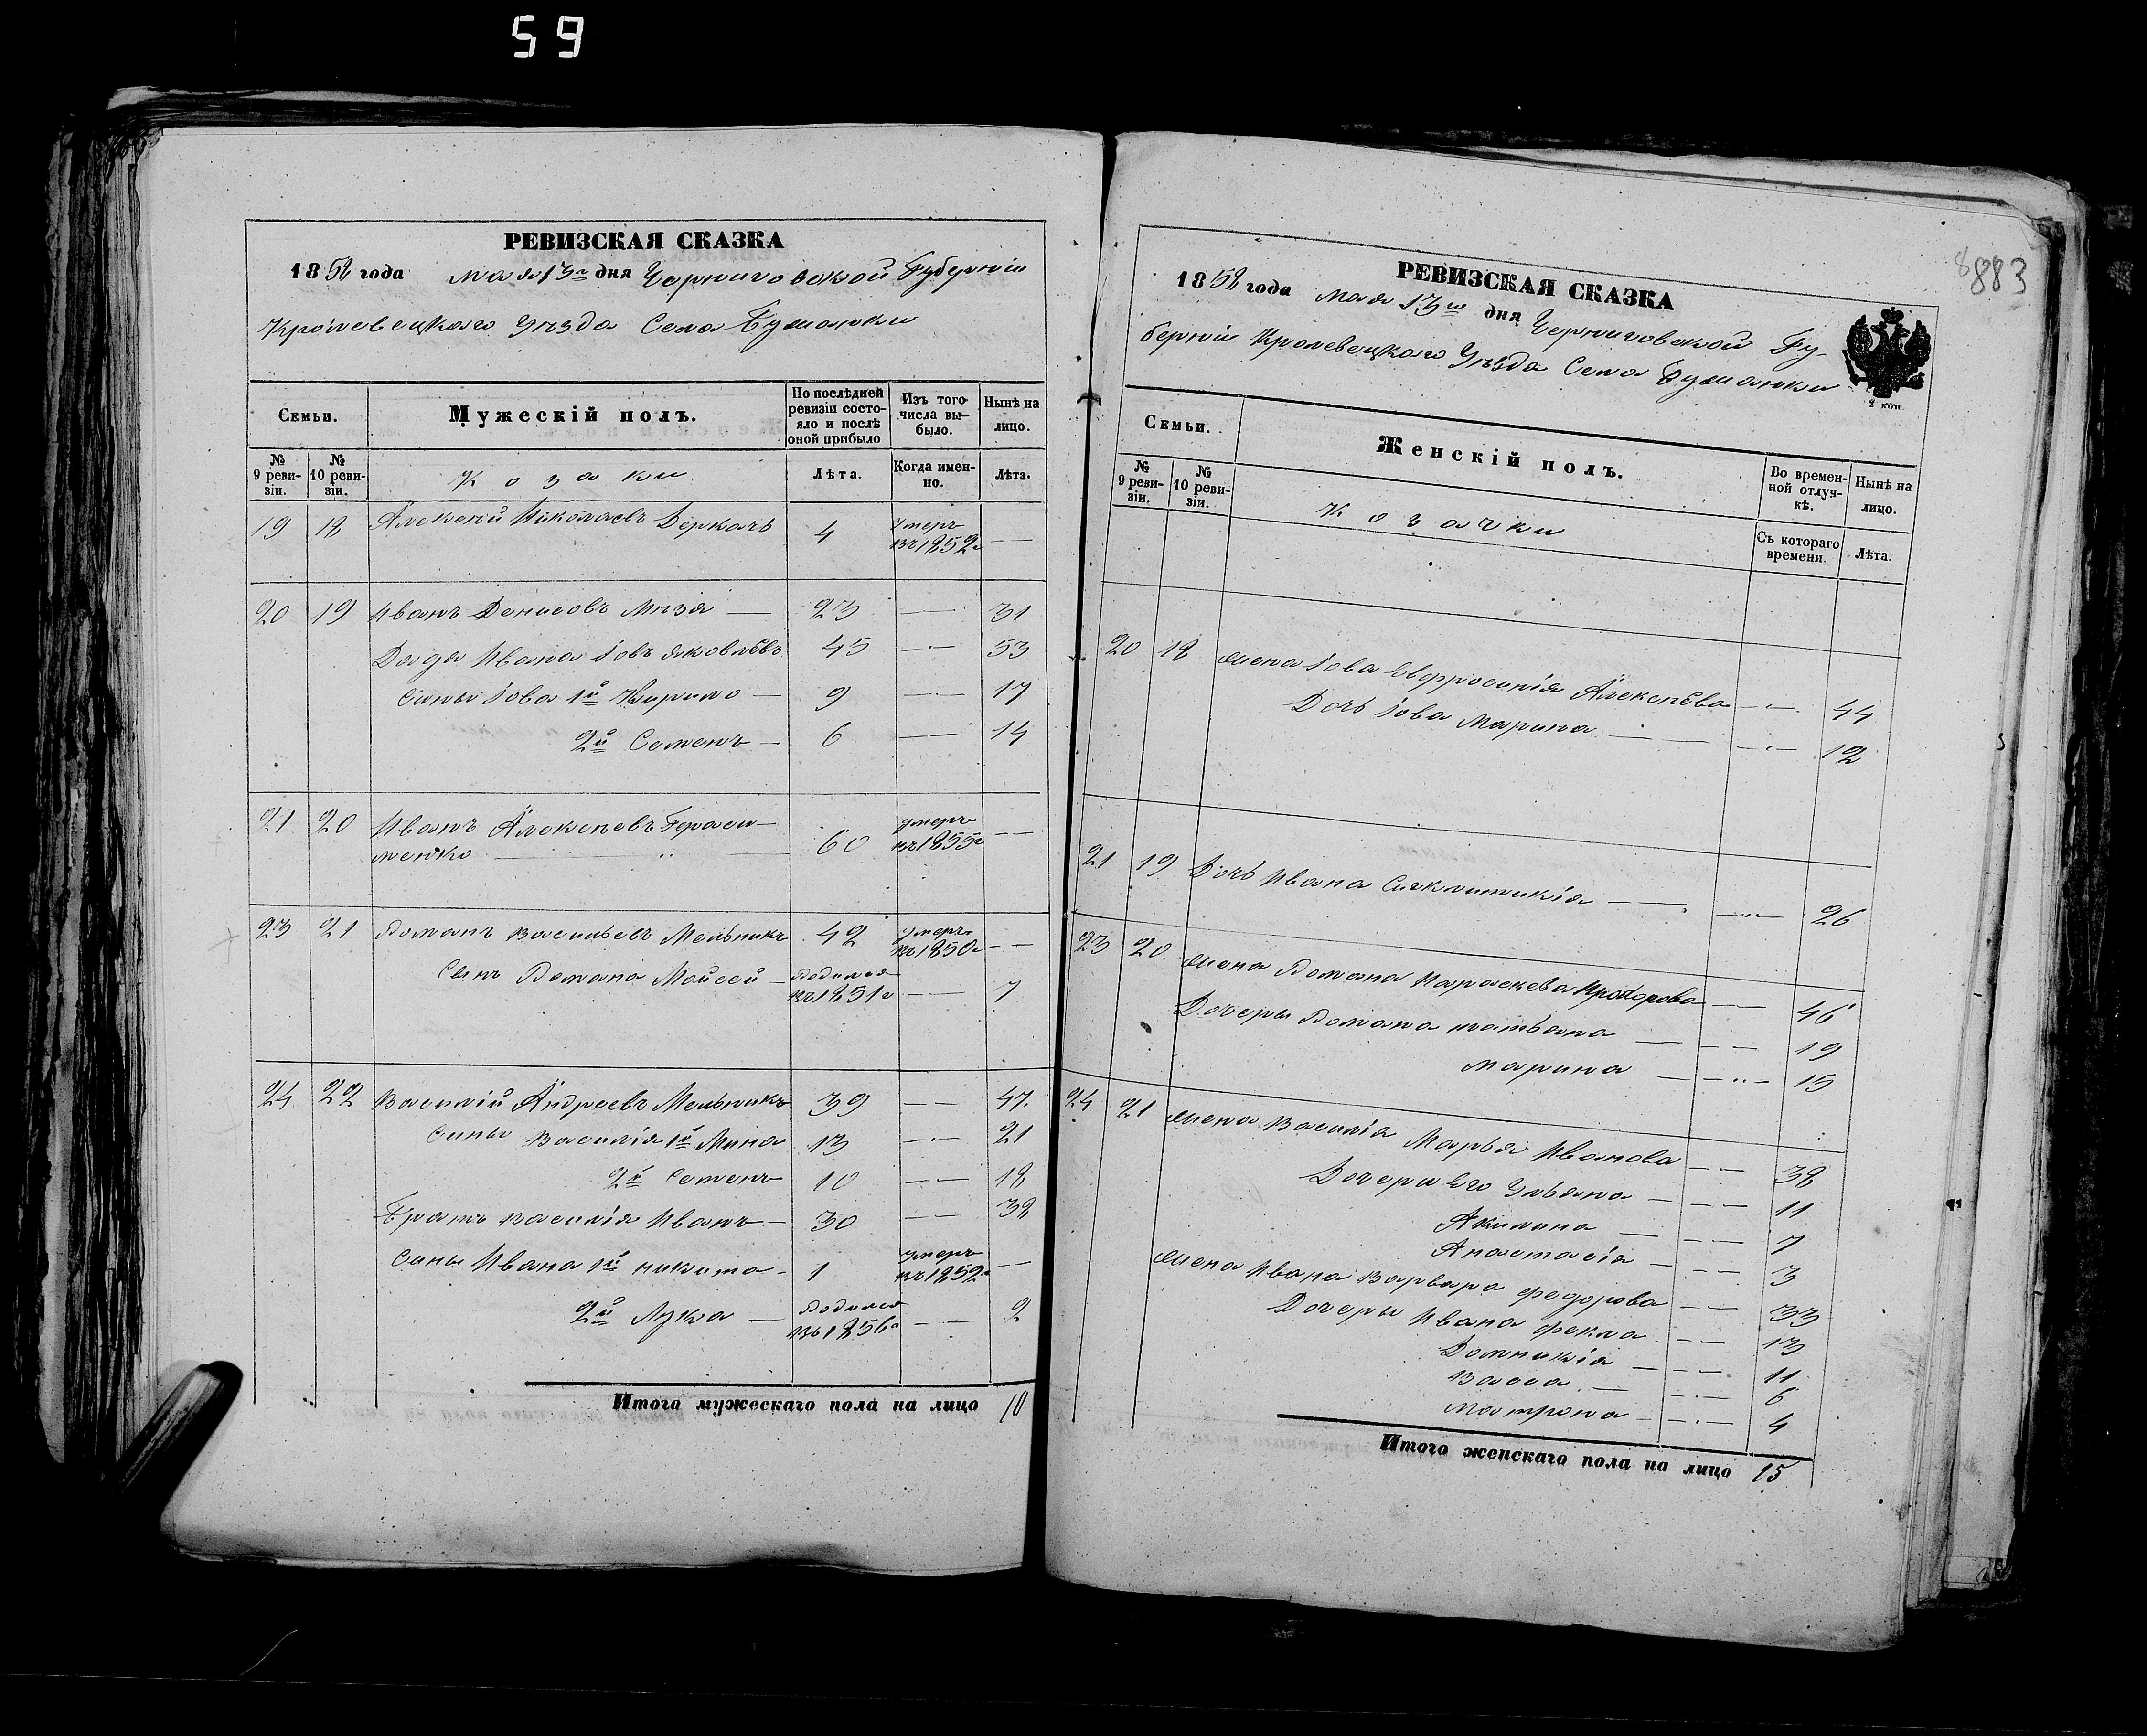 59
РЕВИЗСКАЯ СКАЗКА
1858 года мая 13го дня Черниговской Губерніи
Кролевецкаго Уѣзда Села
Семьи. Мужескій полъ. По послѣдней ревизіи состояло и послѣ оной прибыло Изъ того числа выбыло. Нынѣ на лицо.
№ 9 ревизіи. № 10 ревизіи. Козаки Лѣта. Когда именно. Лѣта.
19 18 Алексѣй Николаевъ Деркачъ 4 умеръ въ 1852г — —
20 19 Иванъ Денисовъ Мизя — 23 — — 31
Дядя Ивана Іовъ Яковлевъ 45 — · — 53
Сыны Іова 1й Кирило — 9 — · — 17
2й Семенъ — 6 — — 14
21 20 Иванъ Алексѣевъ Гераси-
менко 60 умеръ въ 1855г — —
23 21 Романъ Васильевъ Мельникъ 42 умеръ въ 1850г — —
Сынъ Романа Мойсей — Родился въ 1851г — — 7
24 22 Василій Андреевъ Мельникъ 39 — — 47
Сыны Василія 1й Мина 13 — · — 21
2й Семенъ 10 — — 18
Братъ Василія Иванъ — 30 — — 38
Сыны Ивана 1й Никита — 1 умеръ въ 1852г — —
2й Лука — Родился въ 1856г — · — 2
Итого мужескаго пола на лицо 10
883
РЕВИЗСКАЯ СКАЗКА
1858 года мая 13го дня Черниговской Гу-
берніи Кролевецкаго Уѣзда Села
2 коп.
Семьи. Женскій полъ. Во временной отлучкѣ. Нынѣ на лицо.
№ 9 ревизіи. № 10 ревизіи. Козачки Съ котораго времени. Лѣта.
20 18 Жена Іова Евфросинія Алексѣева — " — 44
Дочь Іова Марина — — " — 12
21 19 Дочь Ивана Сиклитикія — — " — 26
23 20 Жена Романа Параскева Прохорова — — 46
Дочери Романа Татьяна — — — 19
Марина — — " — 15
24 21 Жена Василія Марья Иванова — — 38
Дочери Его Ульяна — — — 11
Акилина — — — 7
Анастасія — — · — 3
Жена Ивана Варвара Федорова — — 33
Дочери Ивана Фекла — — — 13
Домникія — — — 11
Васса — — · — 6
Матрона — — · — 4
Итого женскаго пола на лицо 15